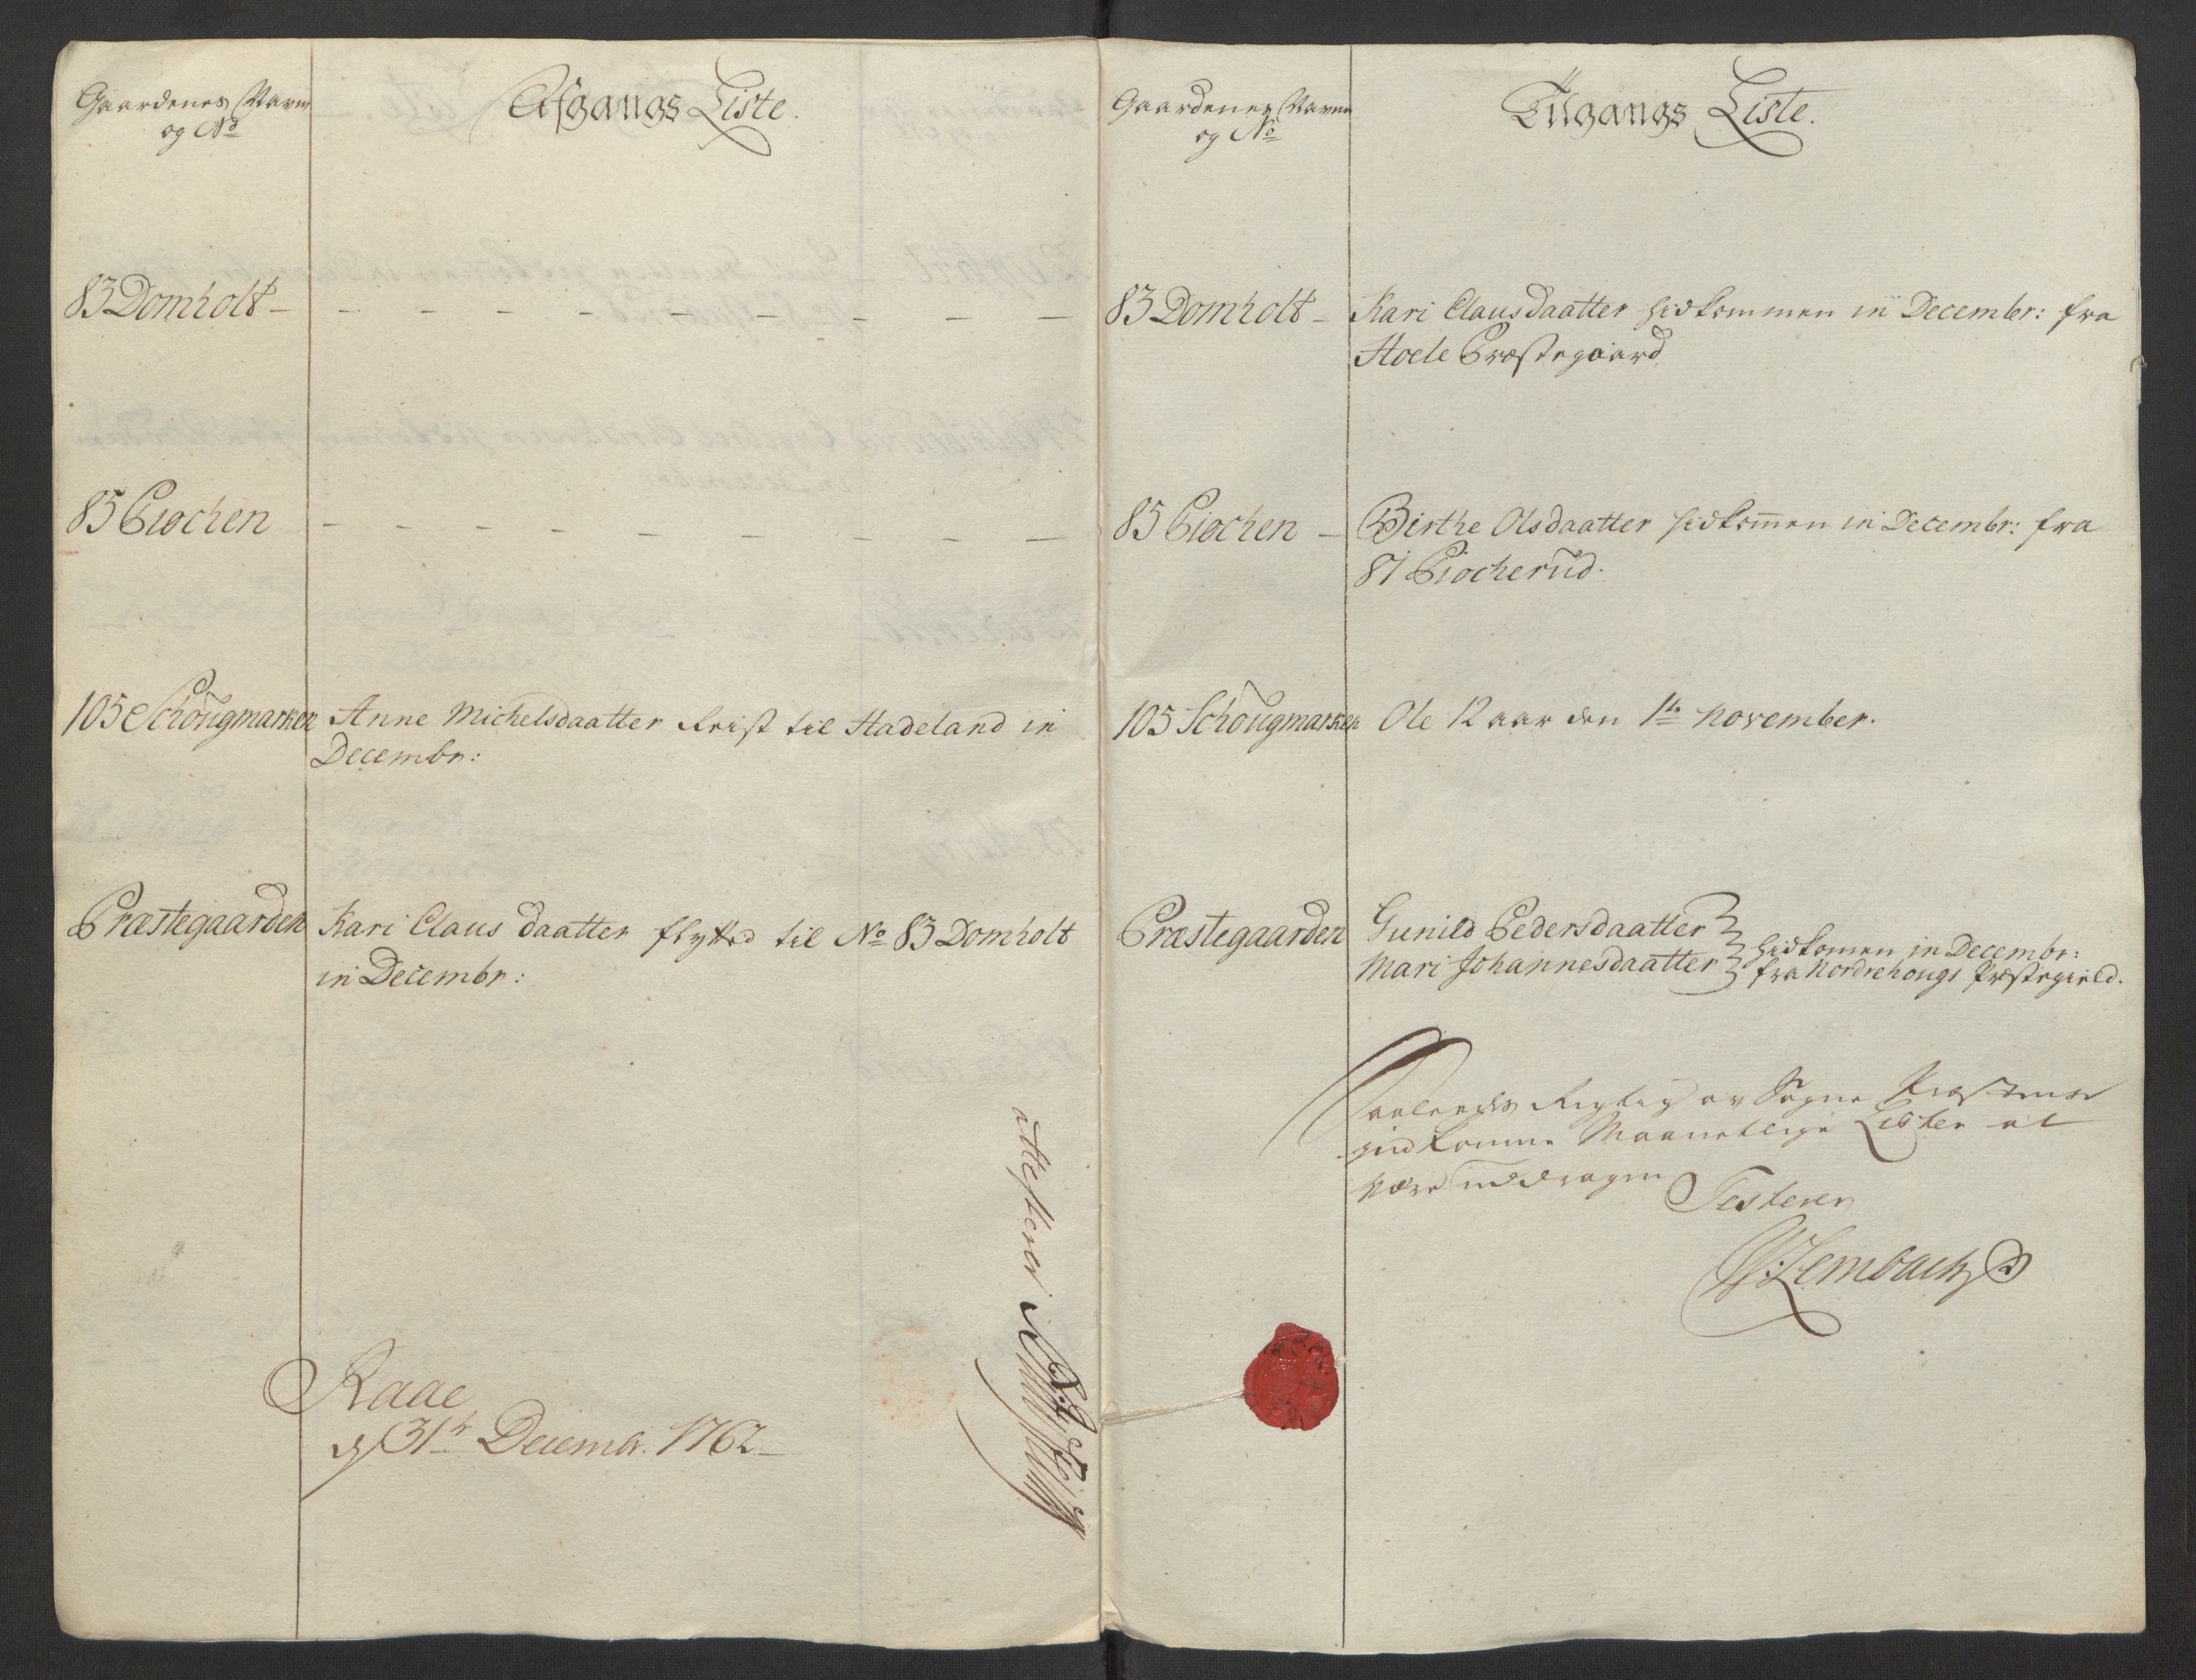 Gaardenes Navne
og No
Afgangs Liste.
83 Domholt - - - - - - - - - -
85 Piochen - - - - - - - - -
105 Schougmarken Anne Michelsdaatter Reist til Hadeland in
Decembr:
Præstegaarden Kari Claus daatter flytted til No 83 Domholt
in Decembr:
attesterer
Raae
d 31te Decembr. 1762
Gaardenes Navne
og No
Tilgangs Liste.
83 Domholt - Kari Clausdaatter hidkommen in Decembr: fra
Hoele Præstegaard
85 Piochen - Birthe Olsdaatter hidkom̄en in Decembr: fra
81 Piocherud.
105 Schougmarken Ole 12 aar den 1te November.
Præstegaarden Gunild Pedersdaatter
Mari Johannesdaatter
hidkomen in Decembr:
fra Nordrehougs Præstegield.
Saaledes Rigtig av Sogne Præstens
indkomne Maanetlige Lister at
være inddragen
Testerer
Lembach